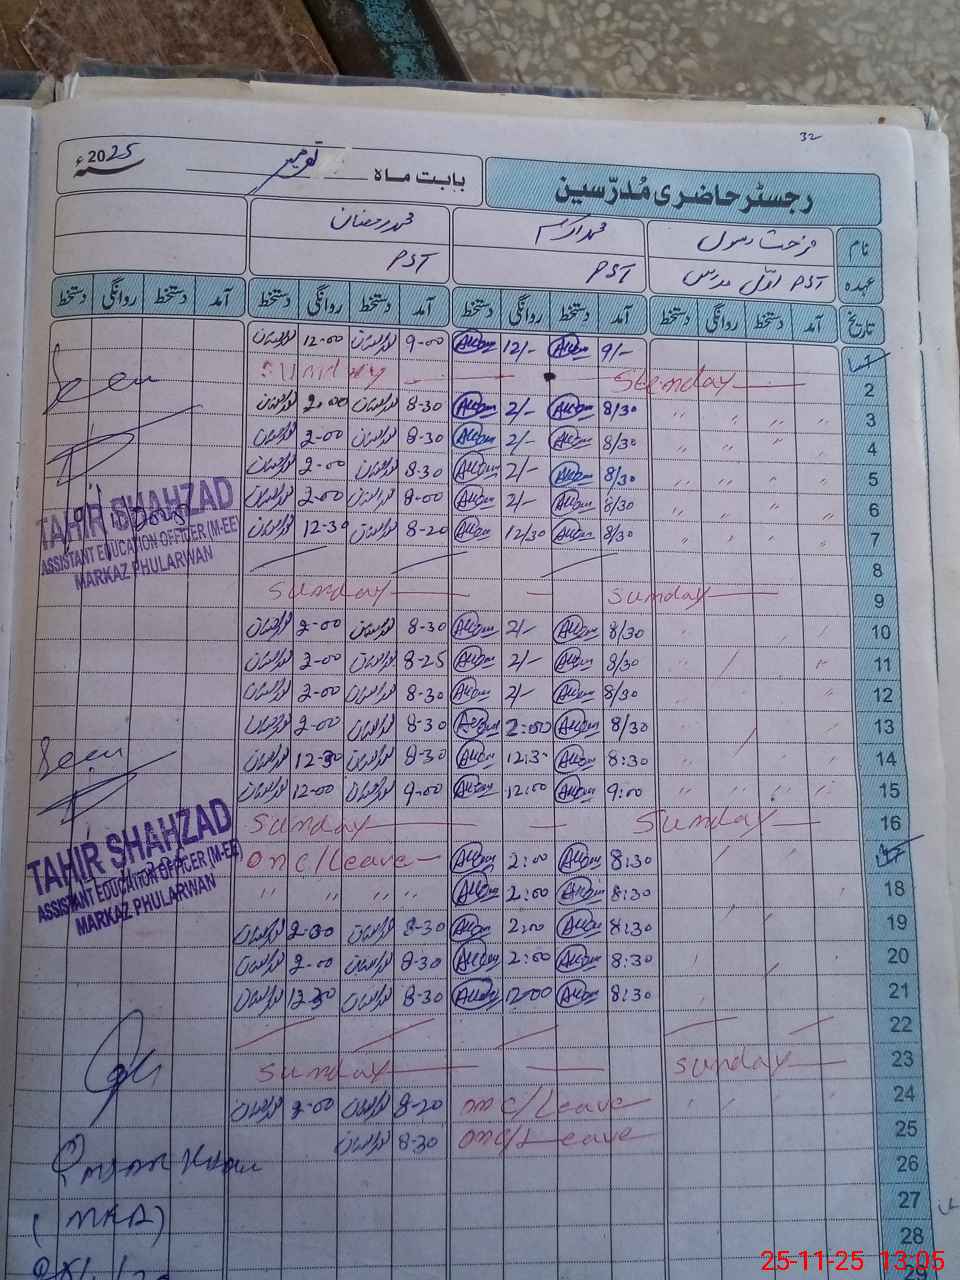 32
رجسٹر حاضری مُدرّسین
بابت ماہ نومبر سنہ 2025ء
نام فرحت رسول محمد اکرم محمد رمضان
عہدہ PST اوّل مدرس PST PST
تاریخ آمد دستخط روانگی دستخط آمد دستخط روانگی دستخط آمد دستخط روانگی دستخط آمد دستخط روانگی دستخط
1 9/- Akram 12/- Akram 9-00 12-00
2 Sunday Sunday
3 " " " " 8/30 Akram 2/- Akram 8-30 2.00
4 " " " " 8/30 Akram 2/- Akram 8-30 2-00
5 " " " " 8/30 Akram 2/- Akram 8-30 2-00
6 " " " " 8/30 Akram 2/- Akram 8-00 2-00
7 " " " " 8/30 Akram 12/30 Akram 8-20 12-30
8
9 Sunday Sunday
10 8/30 Akram 2/- Akram 8-30 2-00
11 8/30 Akram 2/- Akram 8-25 2-00
12 8/30 Akram 2/- Akram 8-30 2-00
13 8/30 Akram 2:00 Akram 8-30 2-00
14 8:30 Akram 12:3 Akram 8-30 12-30
15 " " " " 9:00 Akram 12:00 Akram 9-00 12-00
16 Sunday Sunday
17 8:30 Akram 2:00 Akram on c/Leave
18 8:30 Akram 2:00 Akram " " " "
19 8:30 Akram 2:00 Akram 8-30 2-30
20 8:30 Akram 2:00 Akram 8-30 2-00
21 8:30 Akram 12-00 Akram 8-30 12-30
22
23 Sunday Sunday
24 on c/Leave 8-20 2-00
25 on c/Leave 8-30
26
27
28
29
Seen
TAHIR SHAHZAD
ASSISTANT EDUCATION OFFICER (M-EE)
MARKAZ PHULARWAN
Seen
TAHIR SHAHZAD
ASSISTANT EDUCATION OFFICER (M-EE)
MARKAZ PHULARWAN
(MEA)
25-11-25 13:05